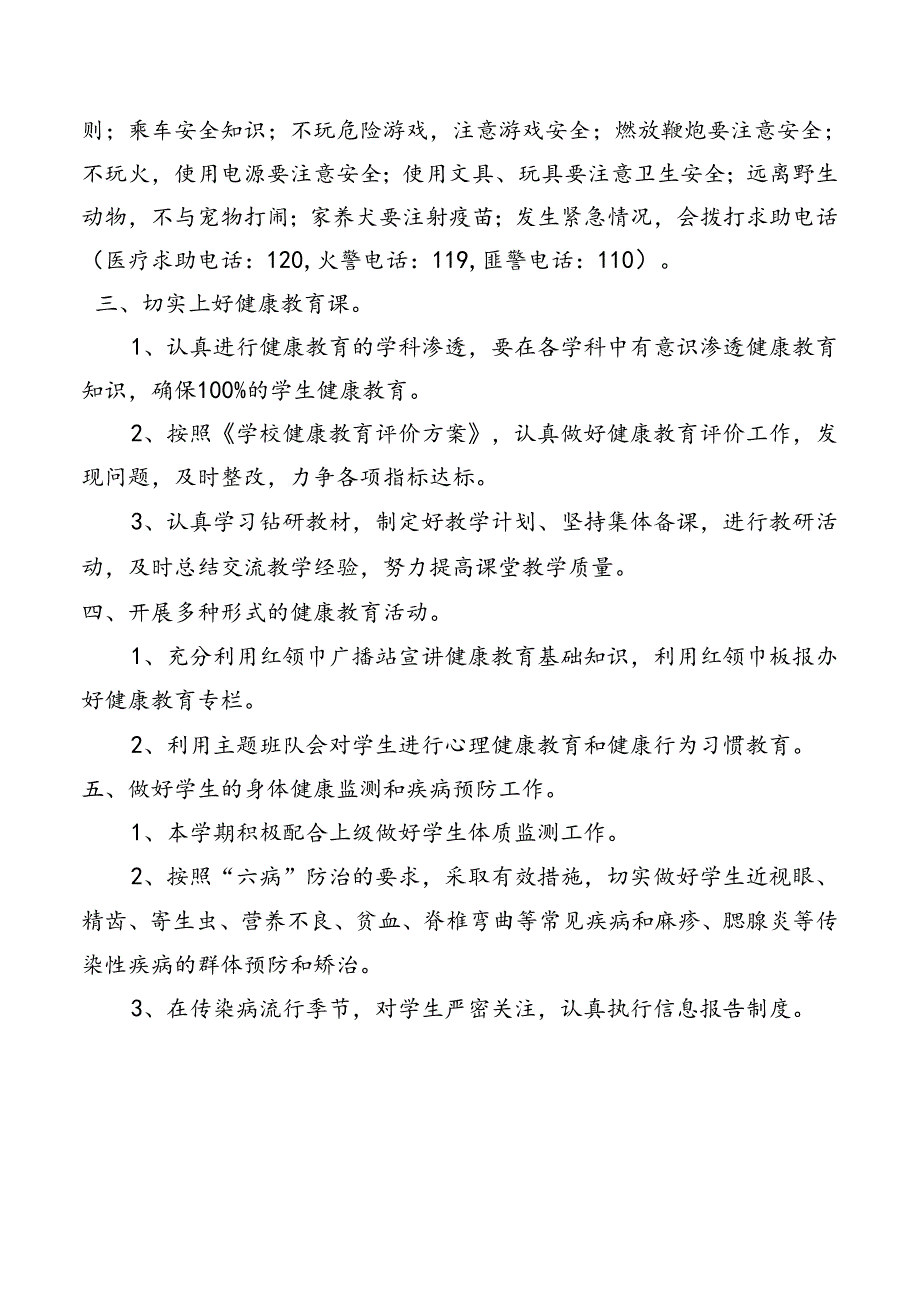 则；乘车安全知识；不玩危险游戏，注意游戏安全；燃放鞭炮要注意安全；
不玩火，使用电源要注意安全；使用文具、玩具要注意卫生安全；远离野生
动物，不与宠物打闹；家养犬要注射疫苗；发生紧急情况，会拨打求助电话
（医疗求助电话：120,火警电话：119,匪警电话：110）。
三、切实上好健康教育课。
1、认真进行健康教育的学科渗透，要在各学科中有意识渗透健康教育
知识，确保100%的学生健康教育。
2、按照《学校健康教育评价方案》，认真做好健康教育评价工作，发
现问题，及时整改，力争各项指标达标。
3、认真学习钻研教材，制定好教学计划、坚持集体备课，进行教研活
动，及时总结交流教学经验，努力提高课堂教学质量。
四、开展多种形式的健康教育活动。
1、充分利用红领巾广播站宣讲健康教育基础知识，利用红领巾板报办
好健康教育专栏。
2、利用主题班队会对学生进行心理健康教育和健康行为习惯教育。
五、做好学生的身体健康监测和疾病预防工作。
1、本学期积极配合上级做好学生体质监测工作。
2、按照“六病”防治的要求，采取有效措施，切实做好学生近视眼、
精齿、寄生虫、营养不良、贫血、脊椎弯曲等常见疾病和麻疹、腮腺炎等传
染性疾病的群体预防和矫治。
3、在传染病流行季节，对学生严密关注，认真执行信息报告制度。